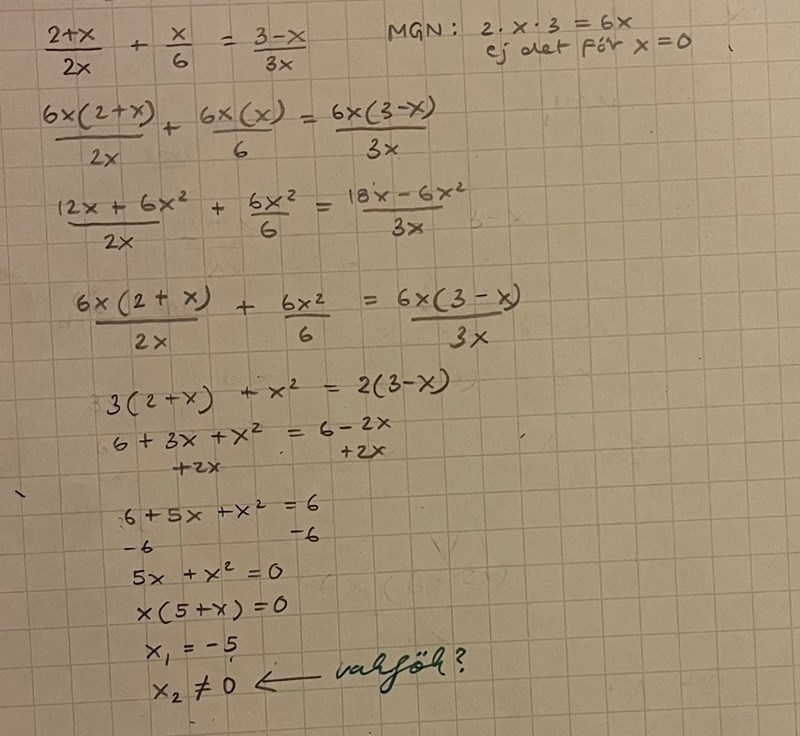 (2+x)/(2x) + x/6 = (3-x)/(3x)    MGN: 2·x·3 = 6x
ej det för x=0
(6x(2+x))/(2x) + (6x(x))/6 = (6x(3-x))/(3x)
(12x + 6x²)/(2x) + (6x²)/6 = (18x - 6x²)/(3x)
(6x(2+x))/(2x) + (6x²)/6 = (6x(3-x))/(3x)
3(2+x) + x² = 2(3-x)
6 + 3x + x² = 6 - 2x
+2x    +2x
6 + 5x + x² = 6
-6    -6
5x + x² = 0
x(5+x) = 0
x₁ = -5
x₂ ≠ 0 ←